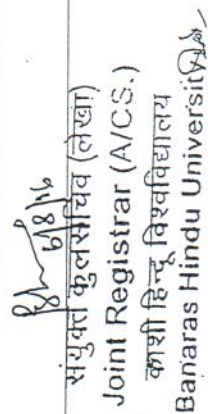 6/8/16
संयुक्त कुलसचिव (लेखा)
Joint Registrar (A/CS.)
काशी हिन्दू विश्वविद्यालय
Banaras Hindu University